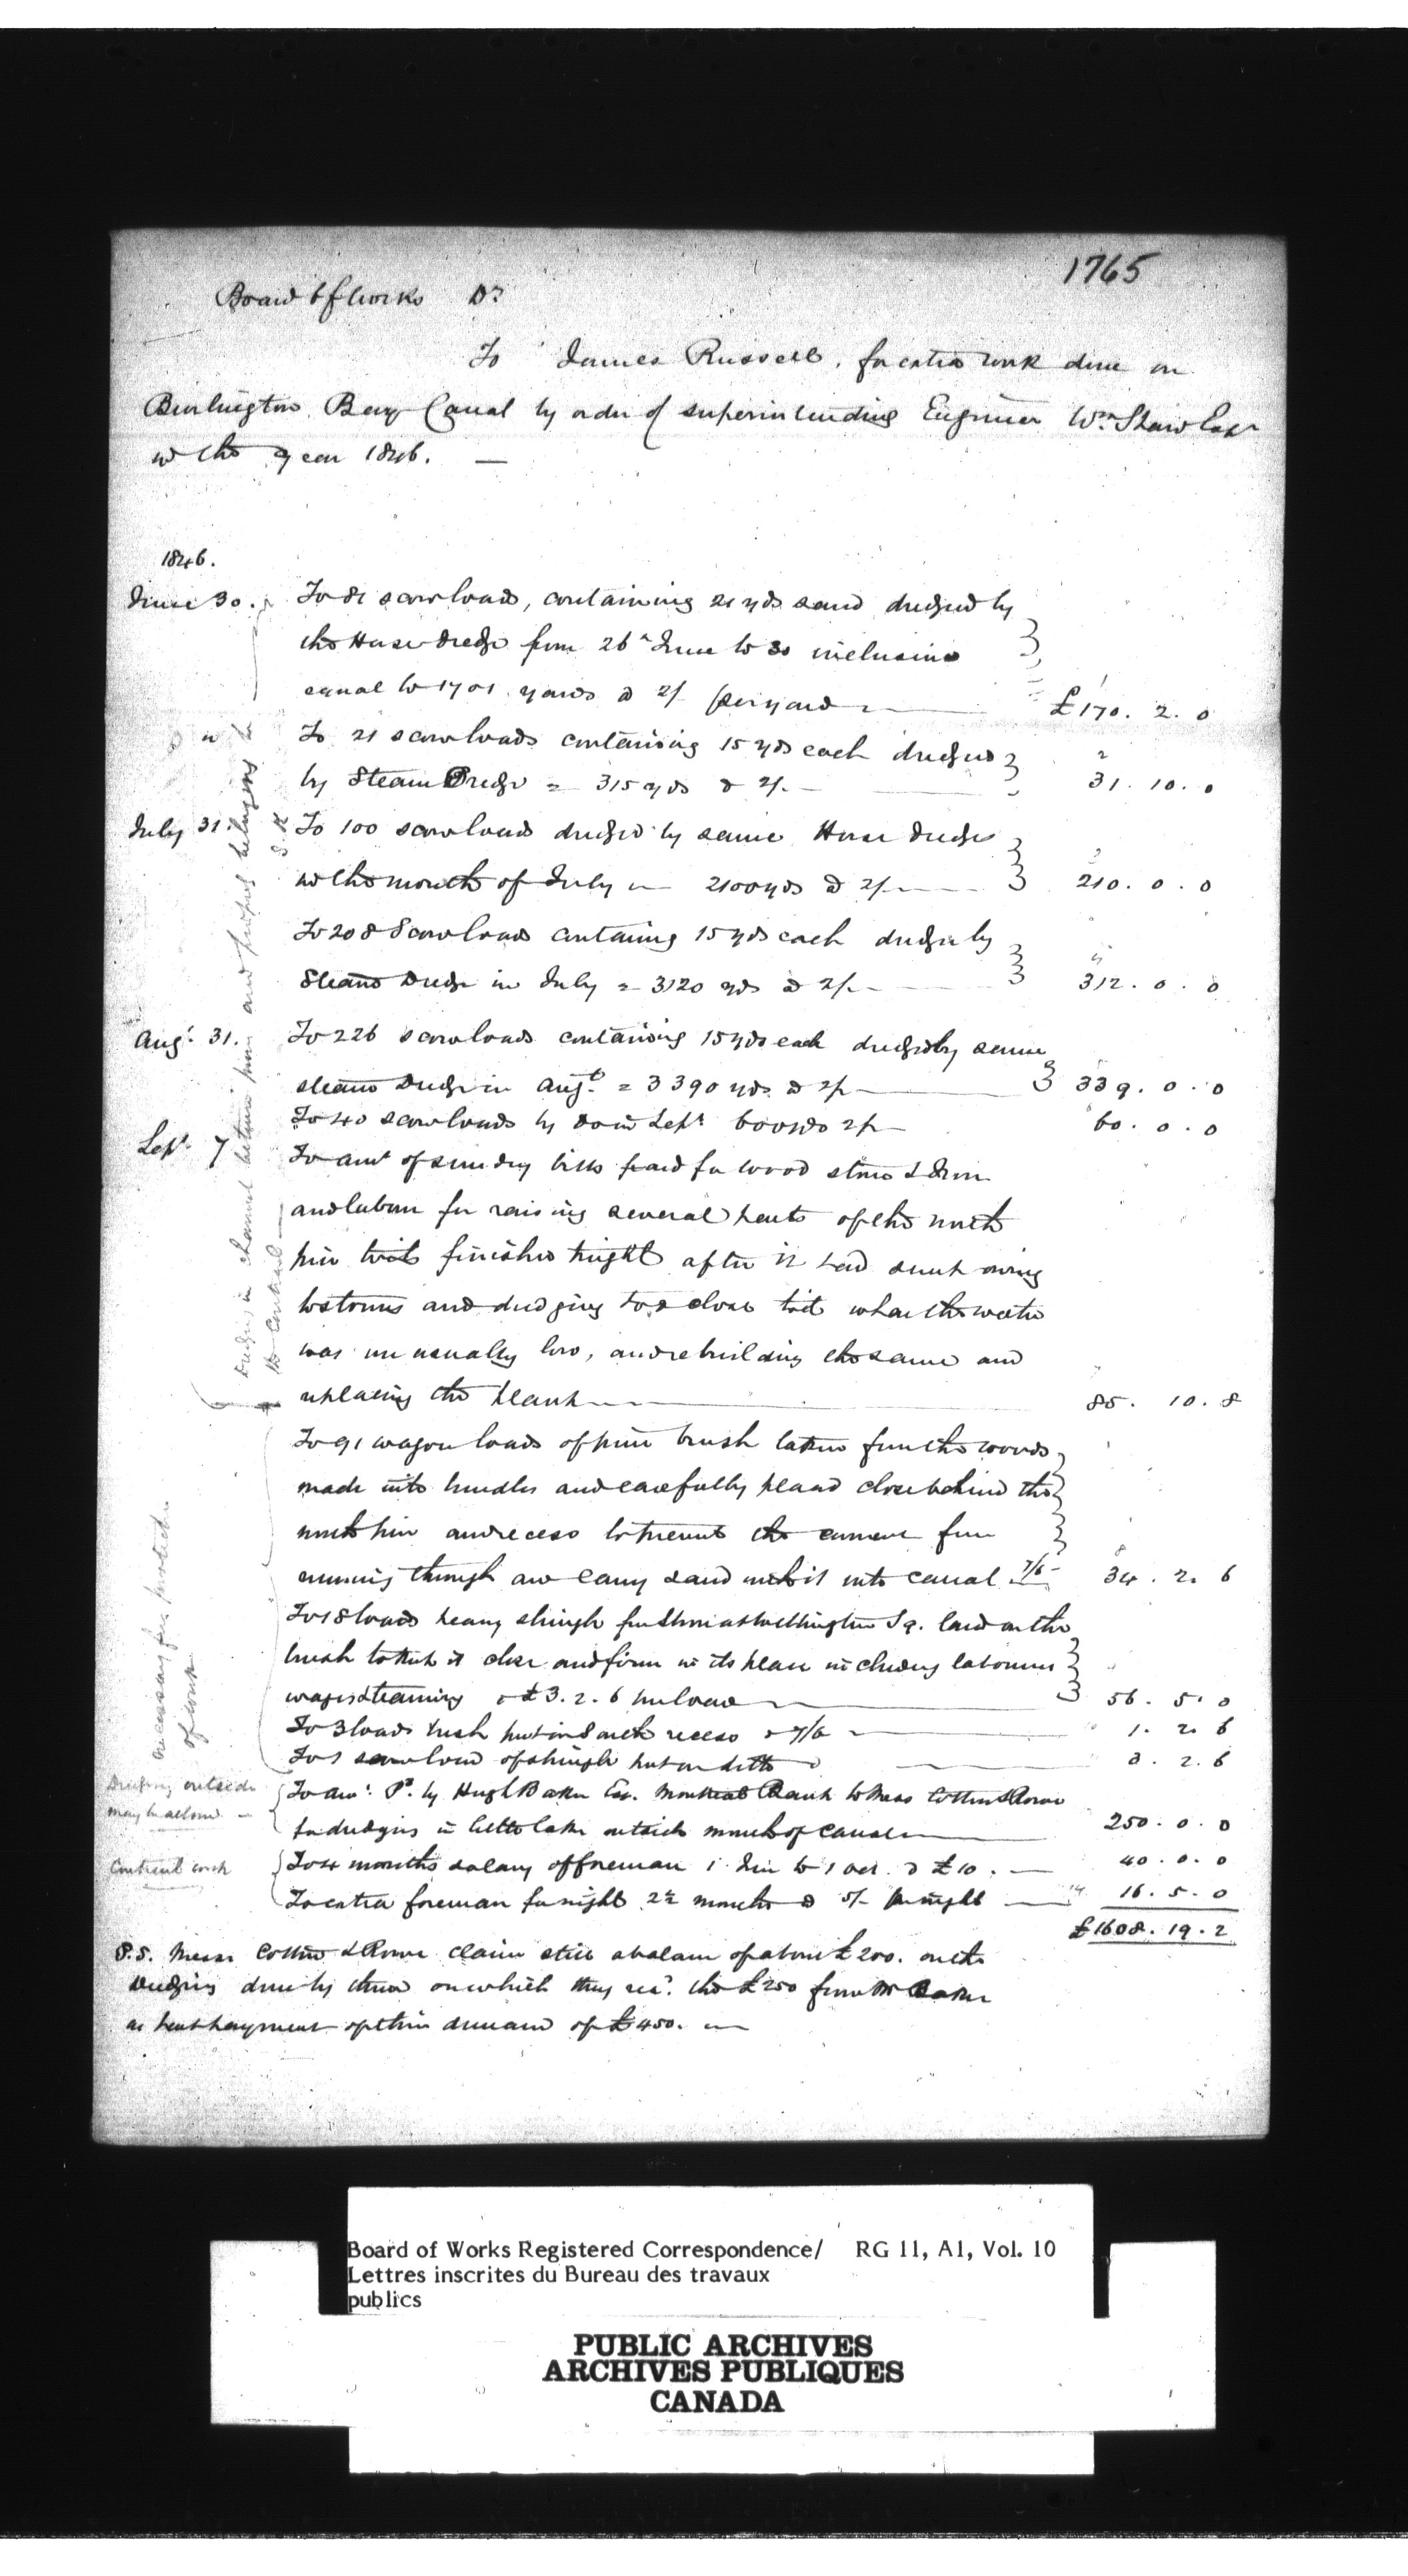 1765
Board of Works Dr
To James Russell, for extra work done on
Burlington Bay Canal by order of superintending Engineer Wm Shaw Esqr
in the year 1846. —
1846.
June 30. To 81 scow loads, containing 21 yds sand dredged by
the Horse Dredge from 26th June to 30 inclusive
equal to 1701 yards @ 2/ per yard — £170. 2. 0
To 21 scow loads containing 15 yds each dredged
by Steam Dredge = 315 yds @ 2/. — 31. 10. 0
July 31. To 100 scow loads dredged by same Horse Dredge
in the month of July — 2100 yds @ 2/ — 210. 0. 0
To 208 Scow loads containing 15 yds each dredged by
Steam Dredge in July = 3120 yds @ 2/ — 312. 0. 0
Augt. 31. To 226 scow loads containing 15 yds each dredged by same
steam Dredge in Augt. = 3390 yds @ 2/ — 339. 0. 0
To 40 scow loads by do in Sept 600 yds 2/ — 60. 0. 0
Sept. 7 To amt of sundry bills paid for wood stone & Iron
and labour for raising several parts of the north
pier to its finished height after it had sunk owing
to storms and dredging too close to it when the water
was unusually low, and rebuilding the same and
replacing the plank — 85. 10. 8
To 91 wagon loads of pine brush taken from the woods
made into bundles and carefully placed close behind the
north pier and recess to prevent the current from
running through and carry sand with it into canal 7/6 34. 2. 6
To 18 loads heavy shingle from shore at Wellington Sq. laid on the
brush to keep it close and firm in its place including labourers
wages & teaming @ £3. 2. 6 per load — 56. 5. 0
To 3 loads brush put in South recess @ 7/6 — 1. 2. 6
To 1 scow load of shingle put on ditto — 3. 2. 6
To amt. Pd. by Hugh Baker Esq. Montreal Bank to Messrs Cotton & Rowe
for dredging in little lake outside mouth of canal — 250. 0. 0
To 4 months salary of foreman 1 June to 1 Oct. @ £10. — 40. 0. 0
To extra foreman for night 2½ months @ 5/- per night — 16. 5. 0
£1608. 19. 2
P.S. Messrs Cotton & Rowe claim still a balance of about £200. on the
Dredging done by them on which they recd. the £250 from Mr Baker
as part payment of their demand of £450. —
Dredging in channel between piers and properly belonging to
the Contract
necessary for protection
of work
Dredging outside
may be allowed —
Contract work
Board of Works Registered Correspondence/ RG 11, A1, Vol. 10
Lettres inscrites du Bureau des travaux
publics
PUBLIC ARCHIVES
ARCHIVES PUBLIQUES
CANADA